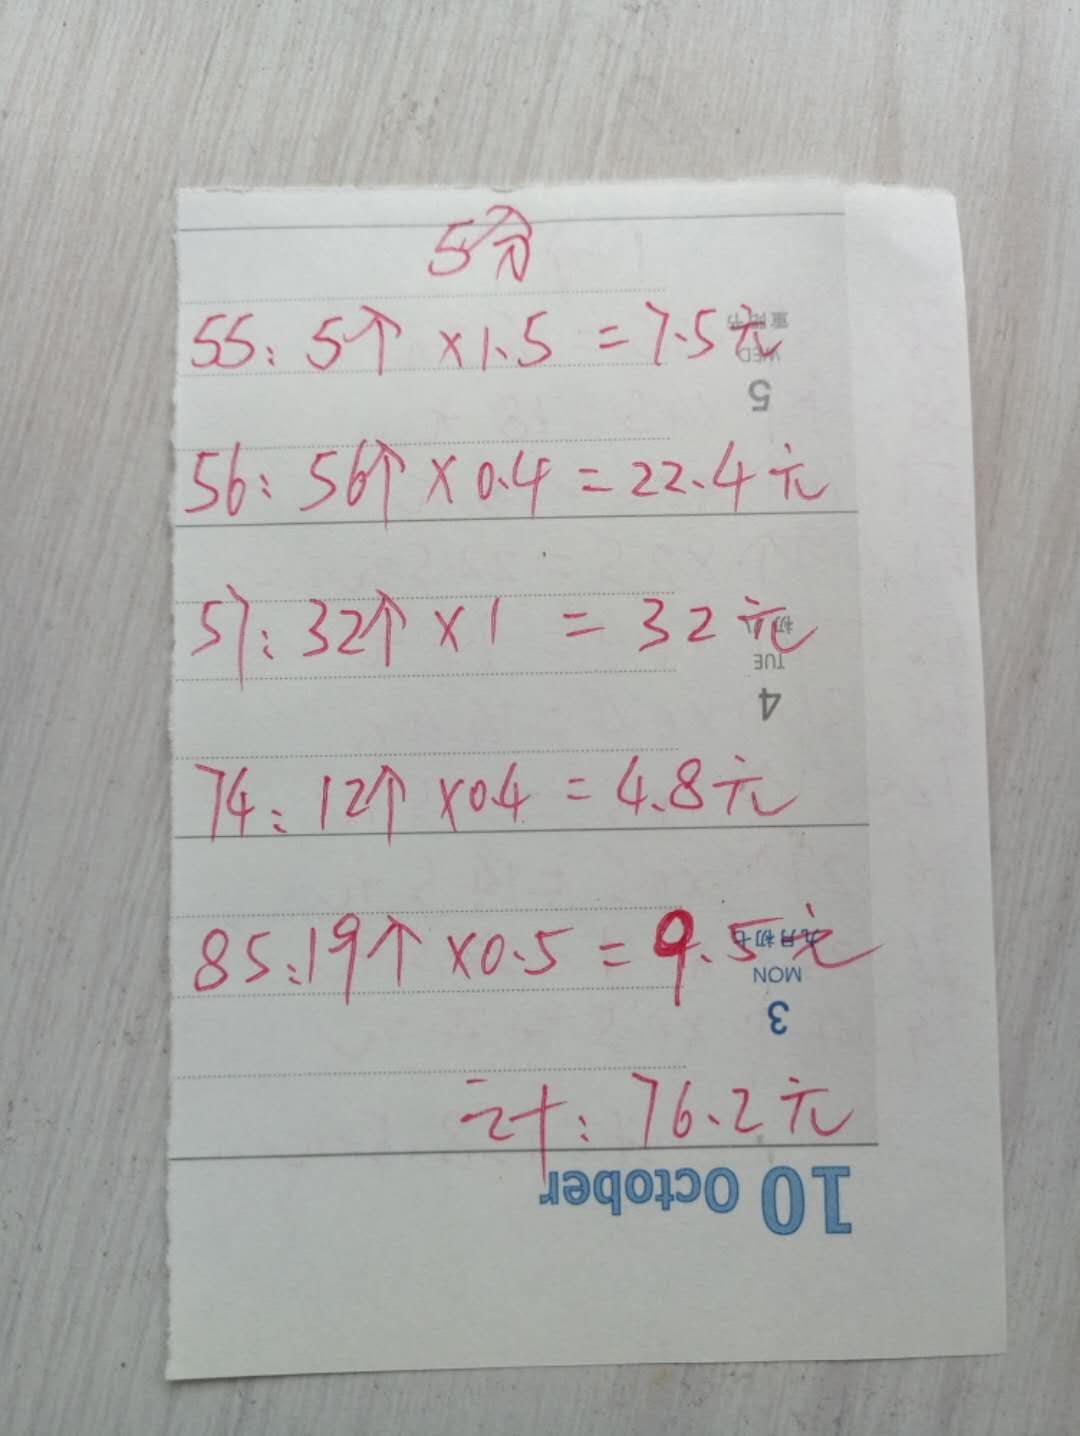 5分
55: 5个 ×1.5 = 7.5元
重阳节
WED
5
56: 56个 × 0.4 = 22.4元
57: 32个 × 1 = 32元
初八
TUE
4
74: 12个 ×0.4 = 4.8元
85: 19个 ×0.5 = 9.5元
九月初七
MON
3
计: 76.2元
10 October